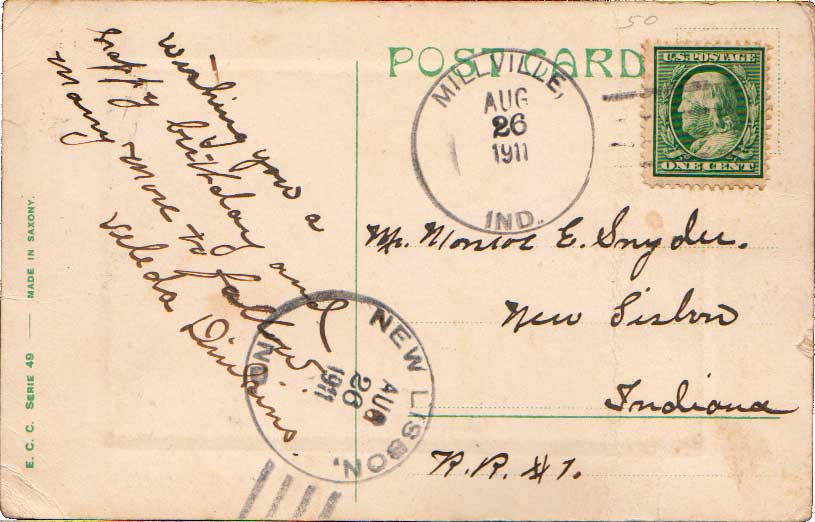 50
POST CARD
U.S. POSTAGE
ONE CENT
MILLVILLE,
AUG
26
1911
IND.
Wishing you a
happy birthday and
many more to follow
Mr. Monroe E. Snyder.
New Lisbon
Indiana
R.R. #1.
NEW LISBON,
IND
AUG
26
1911
E. C. C. SERIE 49 — MADE IN SAXONY.